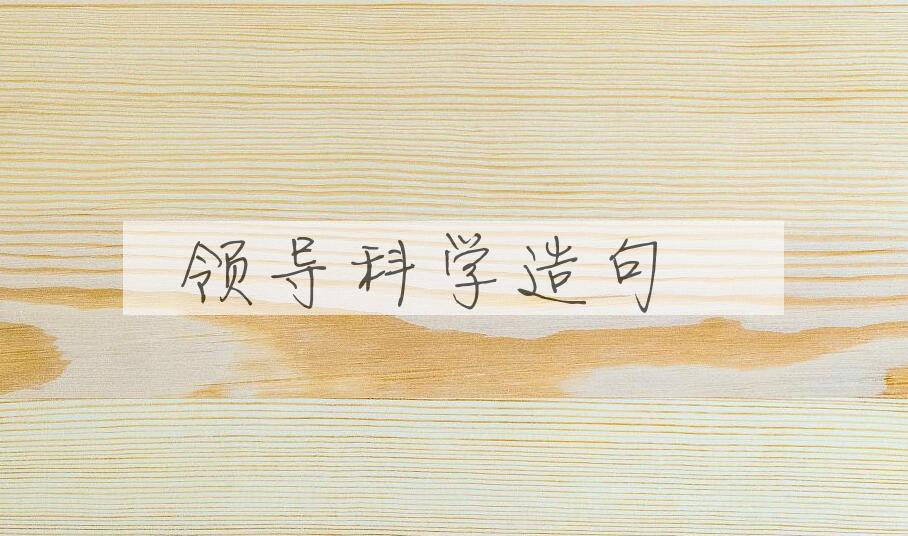 领导科学造句